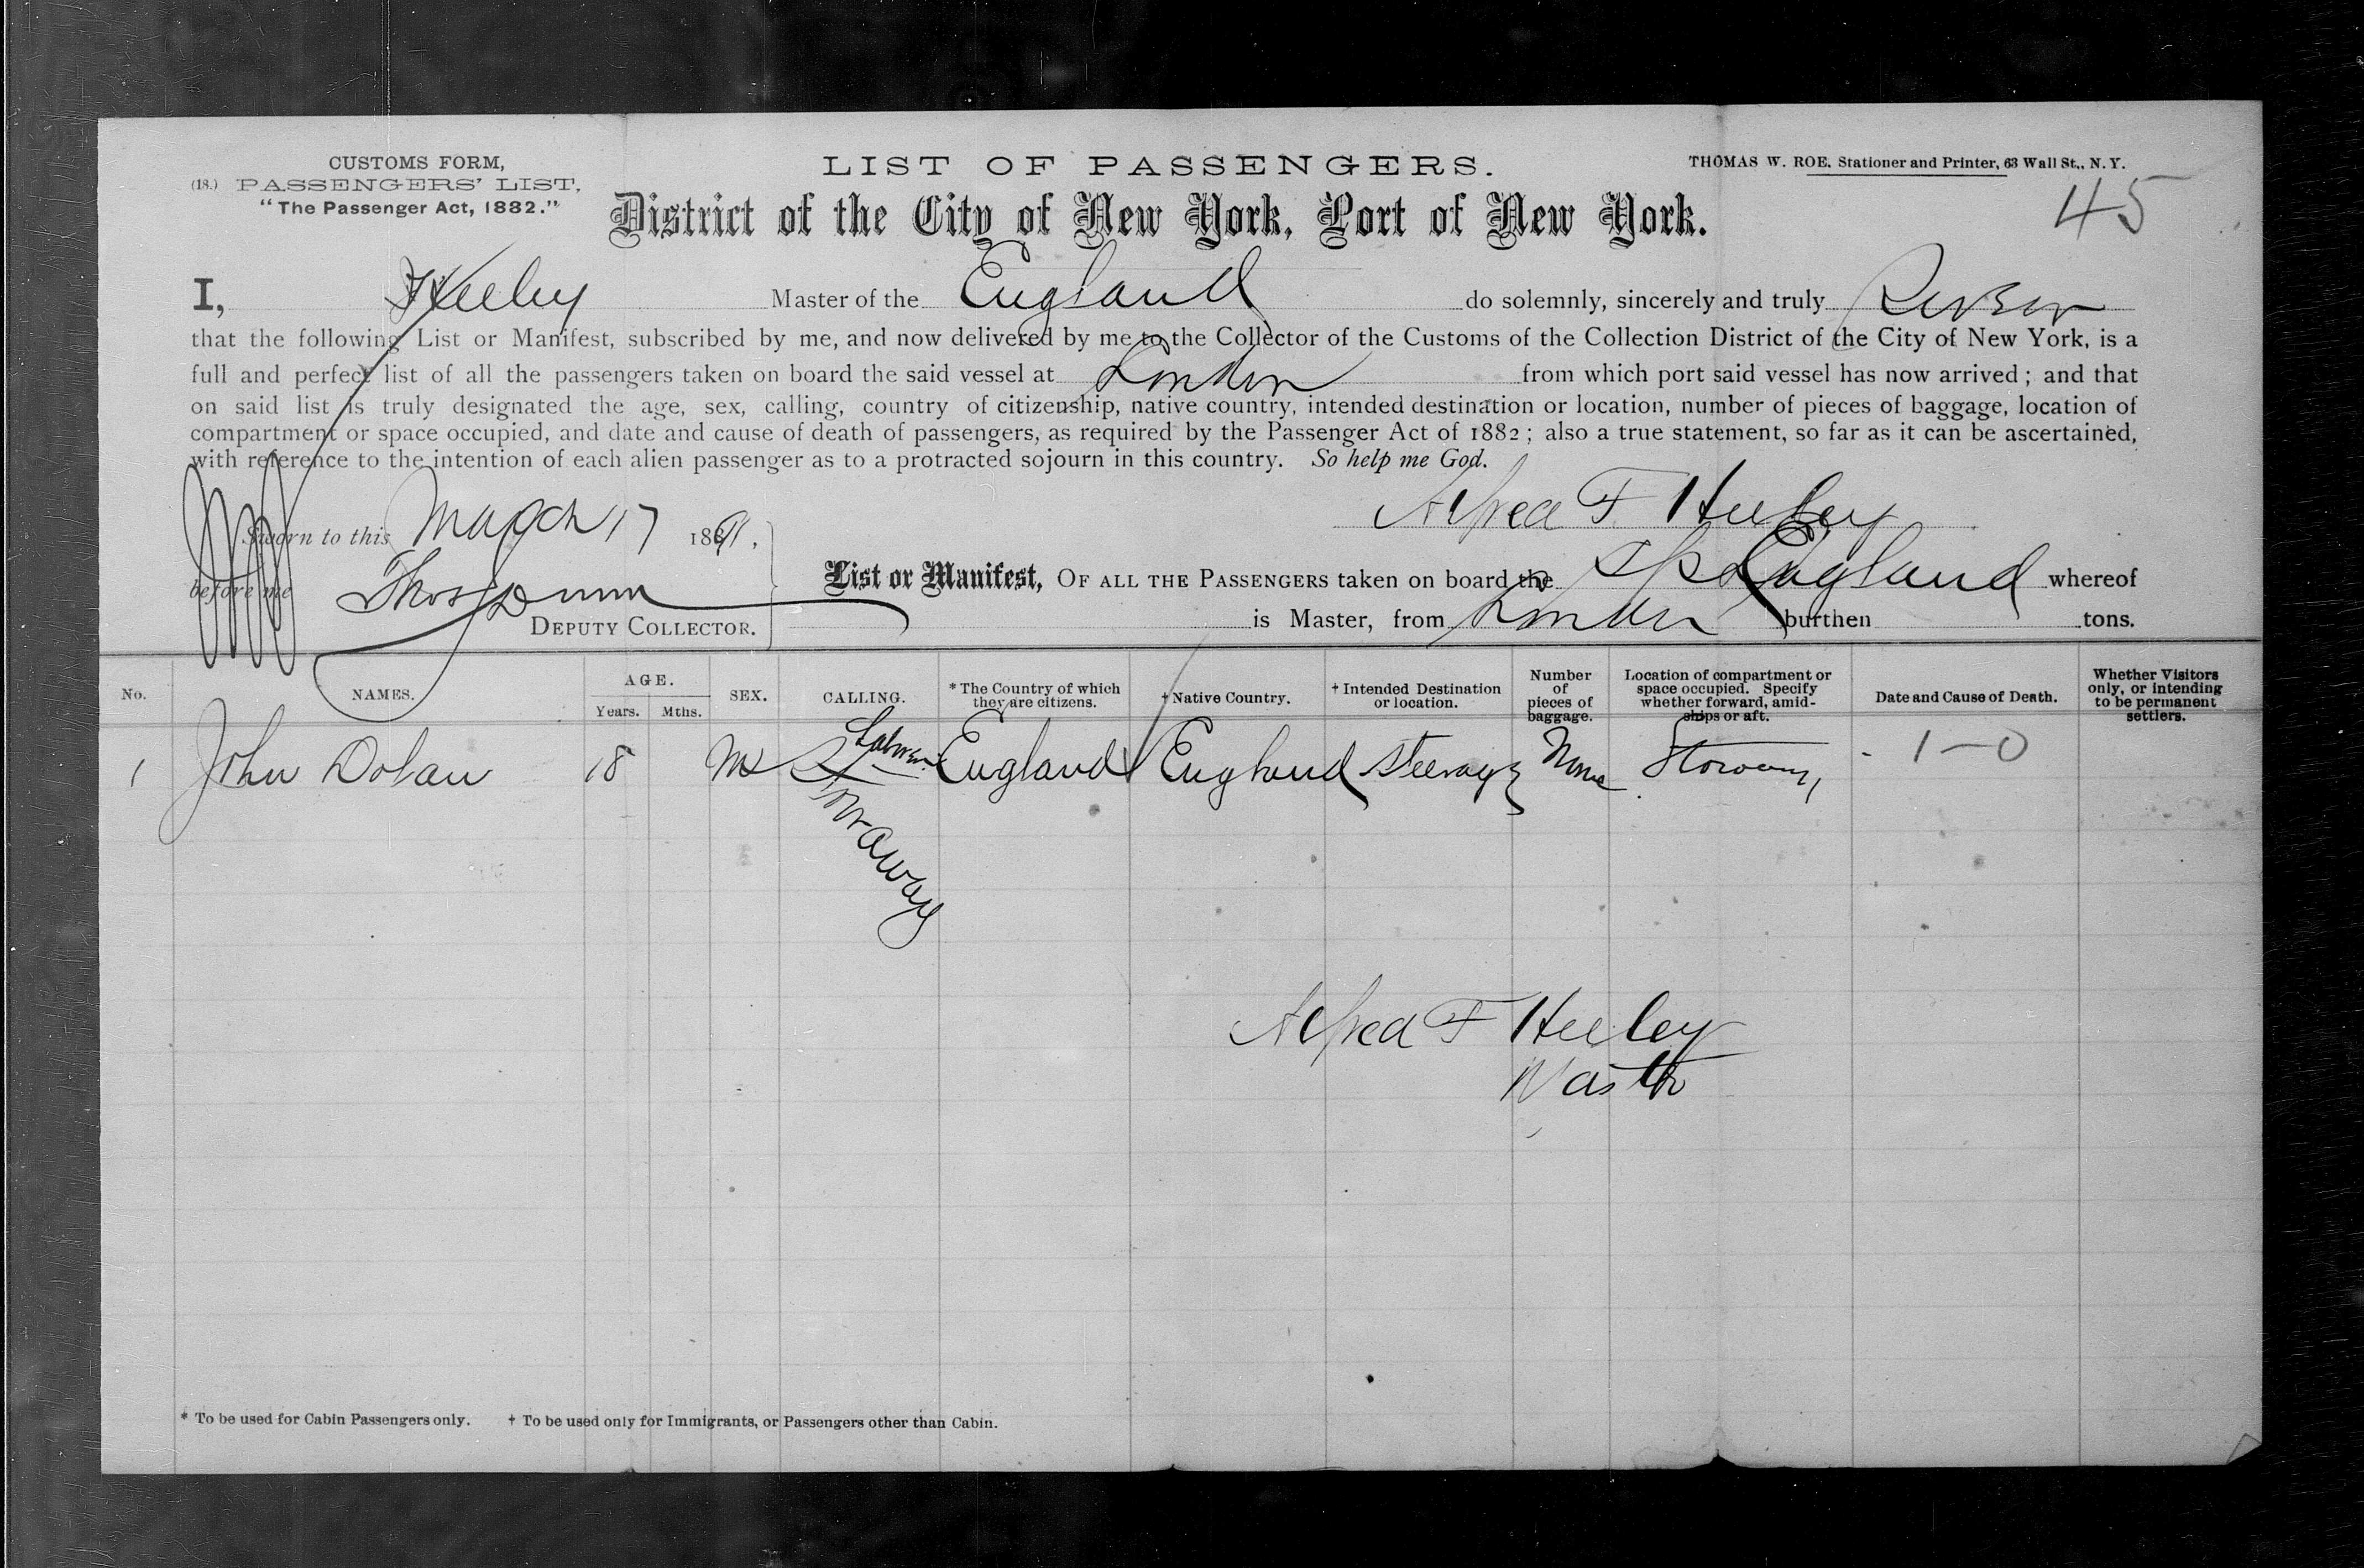 CUSTOMS FORM,
(18.) PASSENGERS' LIST,
"The Passenger Act, 1882."
LIST OF PASSENGERS.
THOMAS W. ROE, Stationer and Printer, 63 Wall St., N. Y.
District of the City of New York, Port of New York.
45
I, Heeley Master of the England do solemnly, sincerely and truly
that the following List or Manifest, subscribed by me, and now delivered by me to the Collector of the Customs of the Collection District of the City of New York, is a
full and perfect list of all the passengers taken on board the said vessel at London from which port said vessel has now arrived; and that
on said list is truly designated the age, sex, calling, country of citizenship, native country, intended destination or location, number of pieces of baggage, location of
compartment or space occupied, and date and cause of death of passengers, as required by the Passenger Act of 1882; also a true statement, so far as it can be ascertained,
with reference to the intention of each alien passenger as to a protracted sojourn in this country. So help me God.
Alfred F Heeley
Sworn to this March 17 1891,
before me Thos Dunn
DEPUTY COLLECTOR.
List or Manifest, OF ALL THE PASSENGERS taken on board the SS England whereof
is Master, from London burthen tons.
No. NAMES. AGE. Years. Mths. SEX. CALLING. * The Country of which they are citizens. † Native Country. † Intended Destination or location. Number of pieces of baggage. Location of compartment or space occupied. Specify whether forward, amidships or aft. Date and Cause of Death. Whether Visitors only, or intending to be permanent settlers.
1 John Dolan 18 M Labourer England England Steerage None Stowaway - 1-0
Stowaway
Alfred F Heeley
Master
* To be used for Cabin Passengers only. † To be used only for Immigrants, or Passengers other than Cabin.